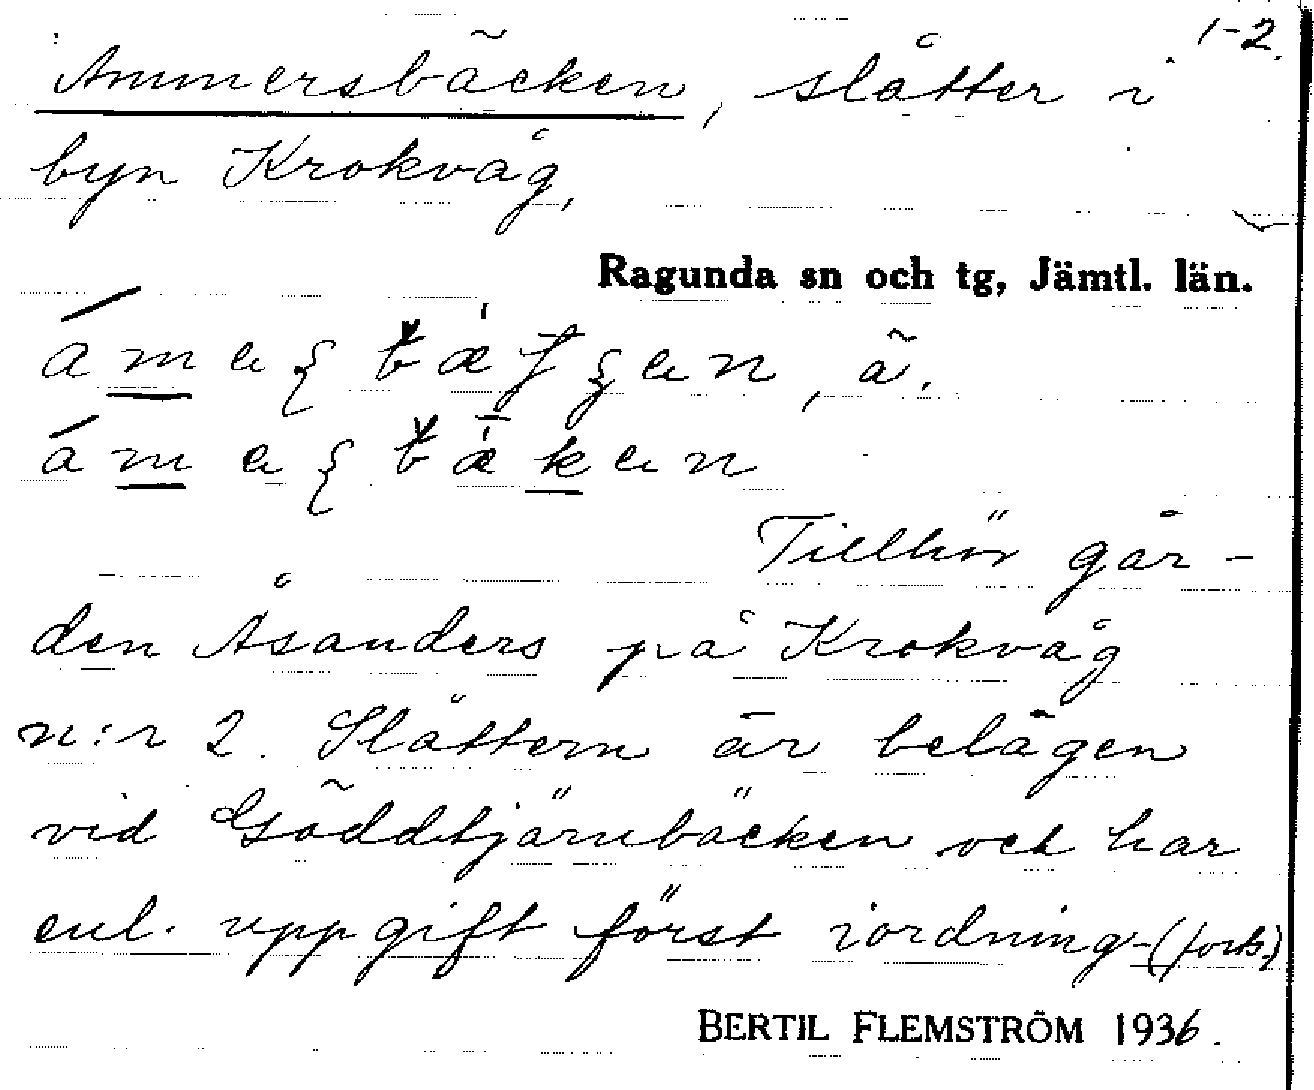 1-2.
Ammersbäcken, slåtter i
byn Krokvåg,
Ragunda sn och tg, Jämtl. län.
Tillhör går-
den Åsanders på Krokvåg
n:r 2. Slåttern är belägen
vid Gäddtjärnbäcken och har
enl. uppgift först iordning-(forts.)
BERTIL FLEMSTRÖM 1936.